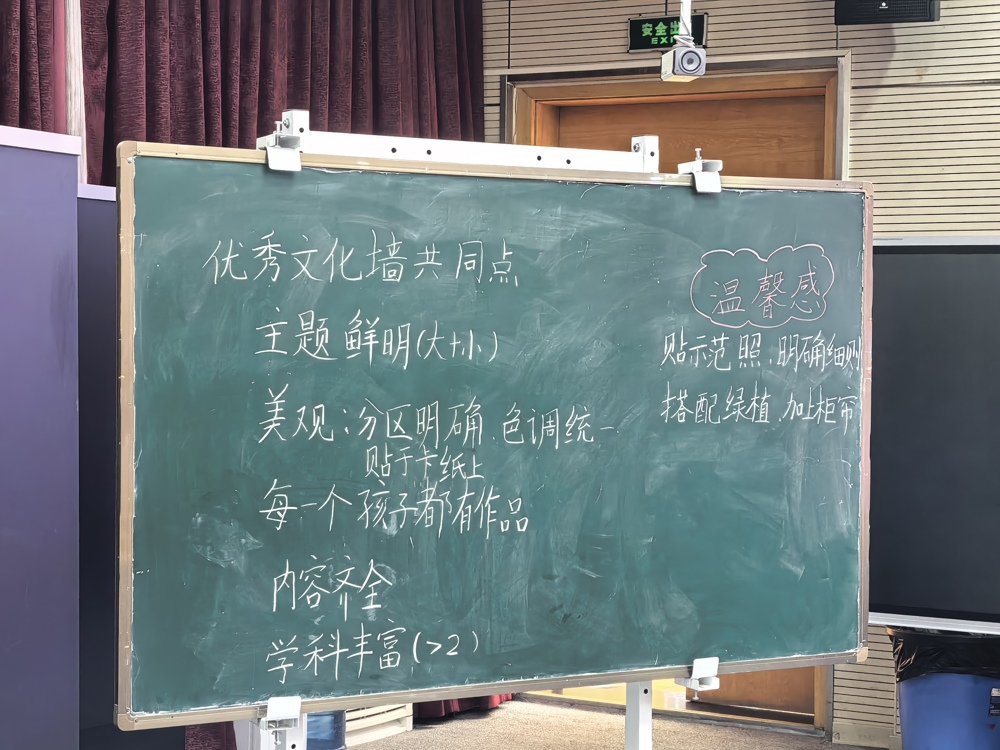 安全出
EXI
优秀文化墙共同点
主题鲜明(大+小)
美观：分区明确、色调统一
贴于卡纸上
每一个孩子都有作品
内容齐全
学科丰富(>2)
温馨感
贴示范照、明确细则
搭配绿植、加上柜帘